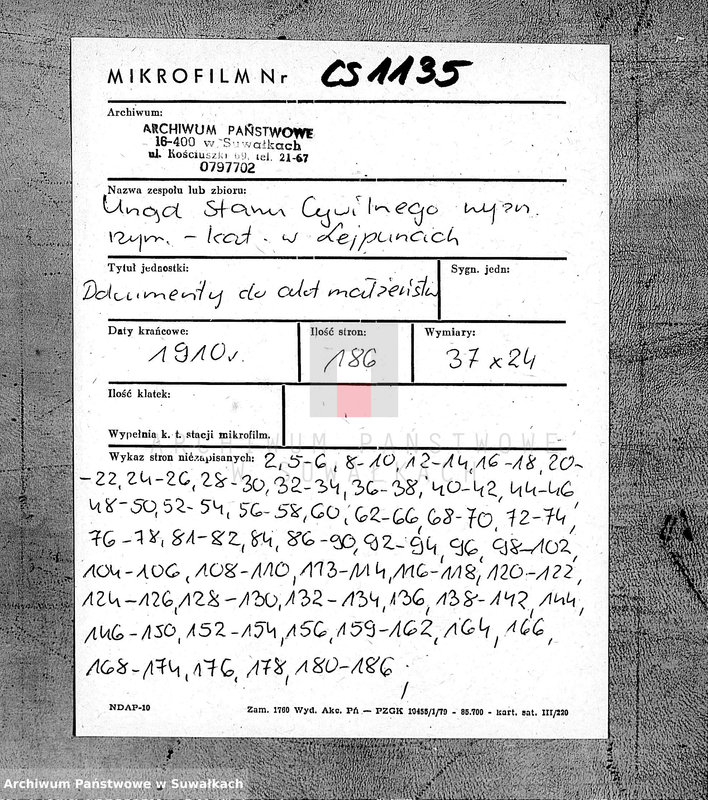 MIKROFILM Nr CS 1135
Archiwum:
ARCHIWUM PAŃSTWOWE
16-400 w Suwałkach
ul. Kościuszki 69, tel. 21-67
0797702
Nazwa zespołu lub zbioru:
Urząd Stanu Cywilnego wyzn.
rzym. - kat. w Lejpunach
Tytuł jednostki:
Sygn. jedn:
Dokumenty do akt małżeństw
Daty krańcowe:
Ilość stron:
Wymiary:
1910r.
186
37 x 24
Ilość klatek:
Wypełnia k. t. stacji mikrofilm.
ARCHIWUM PAŃSTWOWE
W SUWAŁKACH
Wykaz stron niezapisanych: 2, 5-6, 8-10, 12-14, 16-18, 20-
-22, 24-26, 28-30, 32-34, 36-38, 40-42, 44-46
48-50, 52-54, 56-58, 60, 62-66, 68-70, 72-74,
76-78, 81-82, 84, 86-90, 92-94, 96, 98-102,
104-106, 108-110, 113-114, 116-118, 120-122,
124-126, 128-130, 132-134, 136, 138-142, 144,
146-150, 152-154, 156, 159-162, 164, 166,
168-174, 176, 178, 180-186,
NDAP-10
Zam. 1760 Wyd. Akc. Pń — PZGK 10455/1/79 - 85.700 - kart. sat. III/220
Archiwum Państwowe w Suwałkach